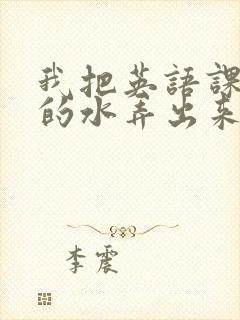 我把英語課
的水弄出來
李震